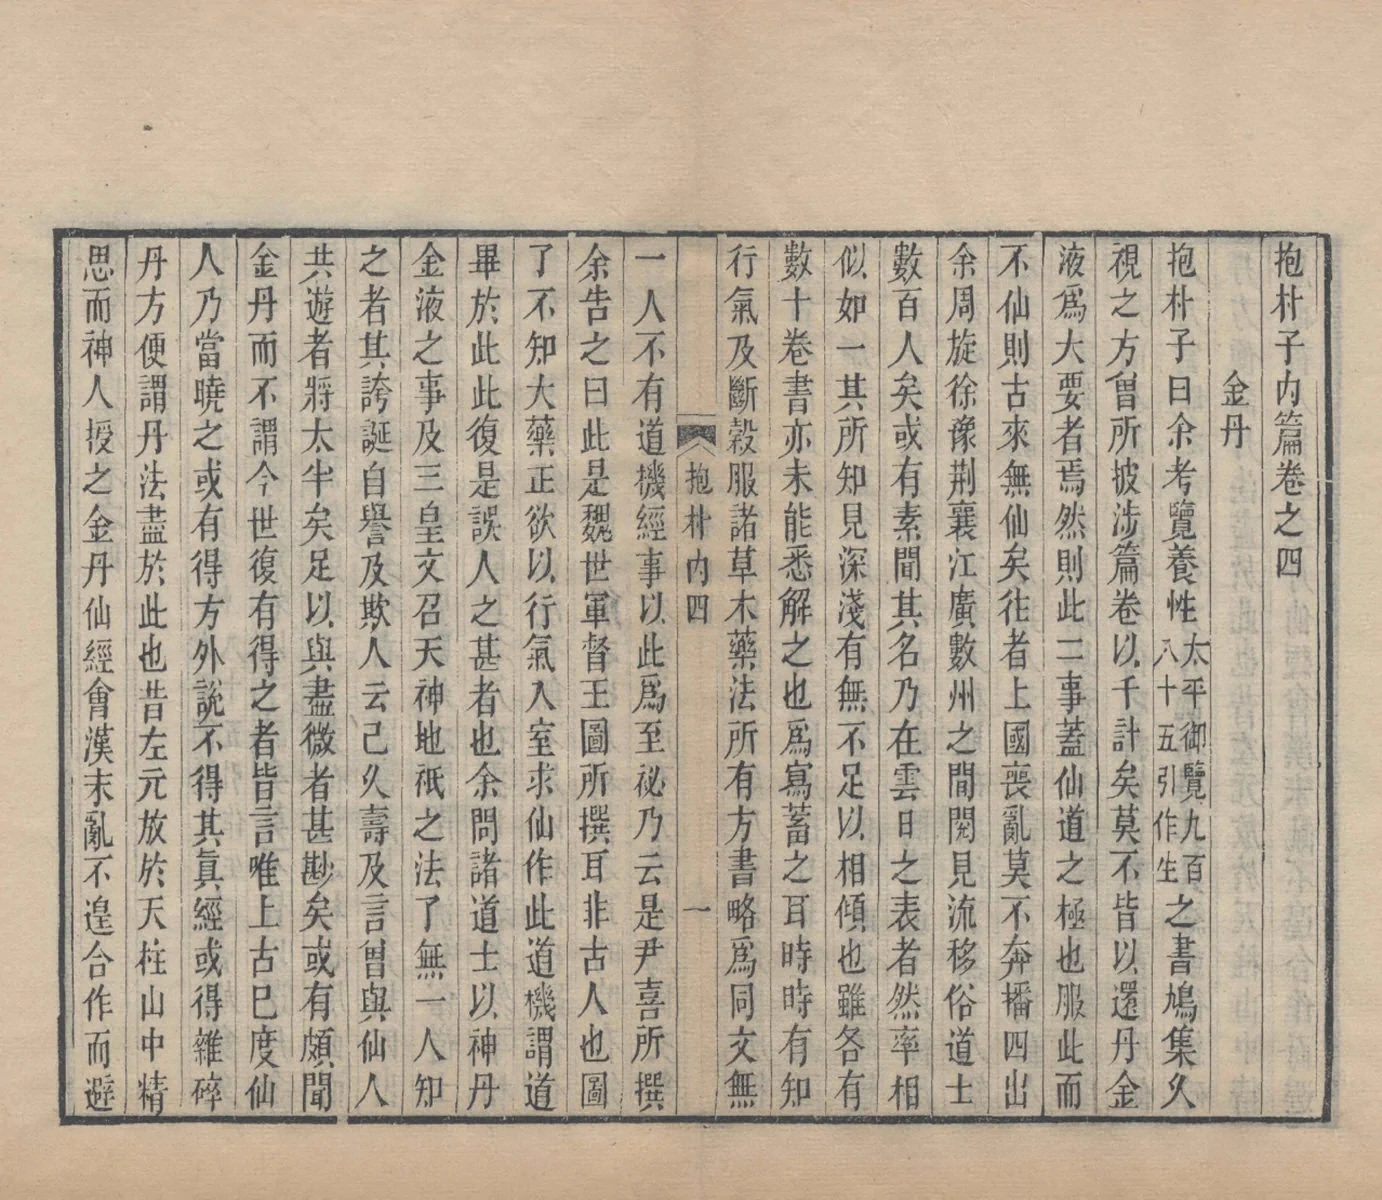 抱朴子内篇卷之四
金丹
抱朴子曰余考覽養性太平御覽九百八十五引作生之書鳩集久
視之方曾所披涉篇卷以千計矣莫不皆以還丹金
液爲大要者焉然則此二事蓋仙道之極也服此而
不仙則古來無仙矣往者上國喪亂莫不奔播四出
余周旋徐豫荆襄江廣數州之間閱見流移俗道士
數百人矣或有素聞其名乃在雲日之表者然率相
似如一其所知見深淺有無不足以相傾也雖各有
數十卷書亦未能悉解之也爲寫蓄之耳時時有知
行氣及斷穀服諸草木藥法所有方書略爲同文無
抱朴内四
一
一人不有道機經事以此爲至祕乃云是尹喜所撰
余告之曰此是魏世軍督王圖所撰耳非古人也圖
了不知大藥正欲以行氣入室求仙作此道機謂道
畢於此此復是誤人之甚者也余問諸道士以神丹
金液之事及三皇文召天神地祇之法了無一人知
之者其誇誕自譽及欺人云己久壽及言曾與仙人
共遊者將太半矣足以與盡微者甚尠矣或有頗聞
金丹而不謂今世復有得之者皆言唯上古已度仙
人乃當曉之或有得方外說不得其眞經或得雜碎
丹方便謂丹法盡於此也昔左元放於天柱山中精
思而神人授之金丹仙經會漢末亂不遑合作而避